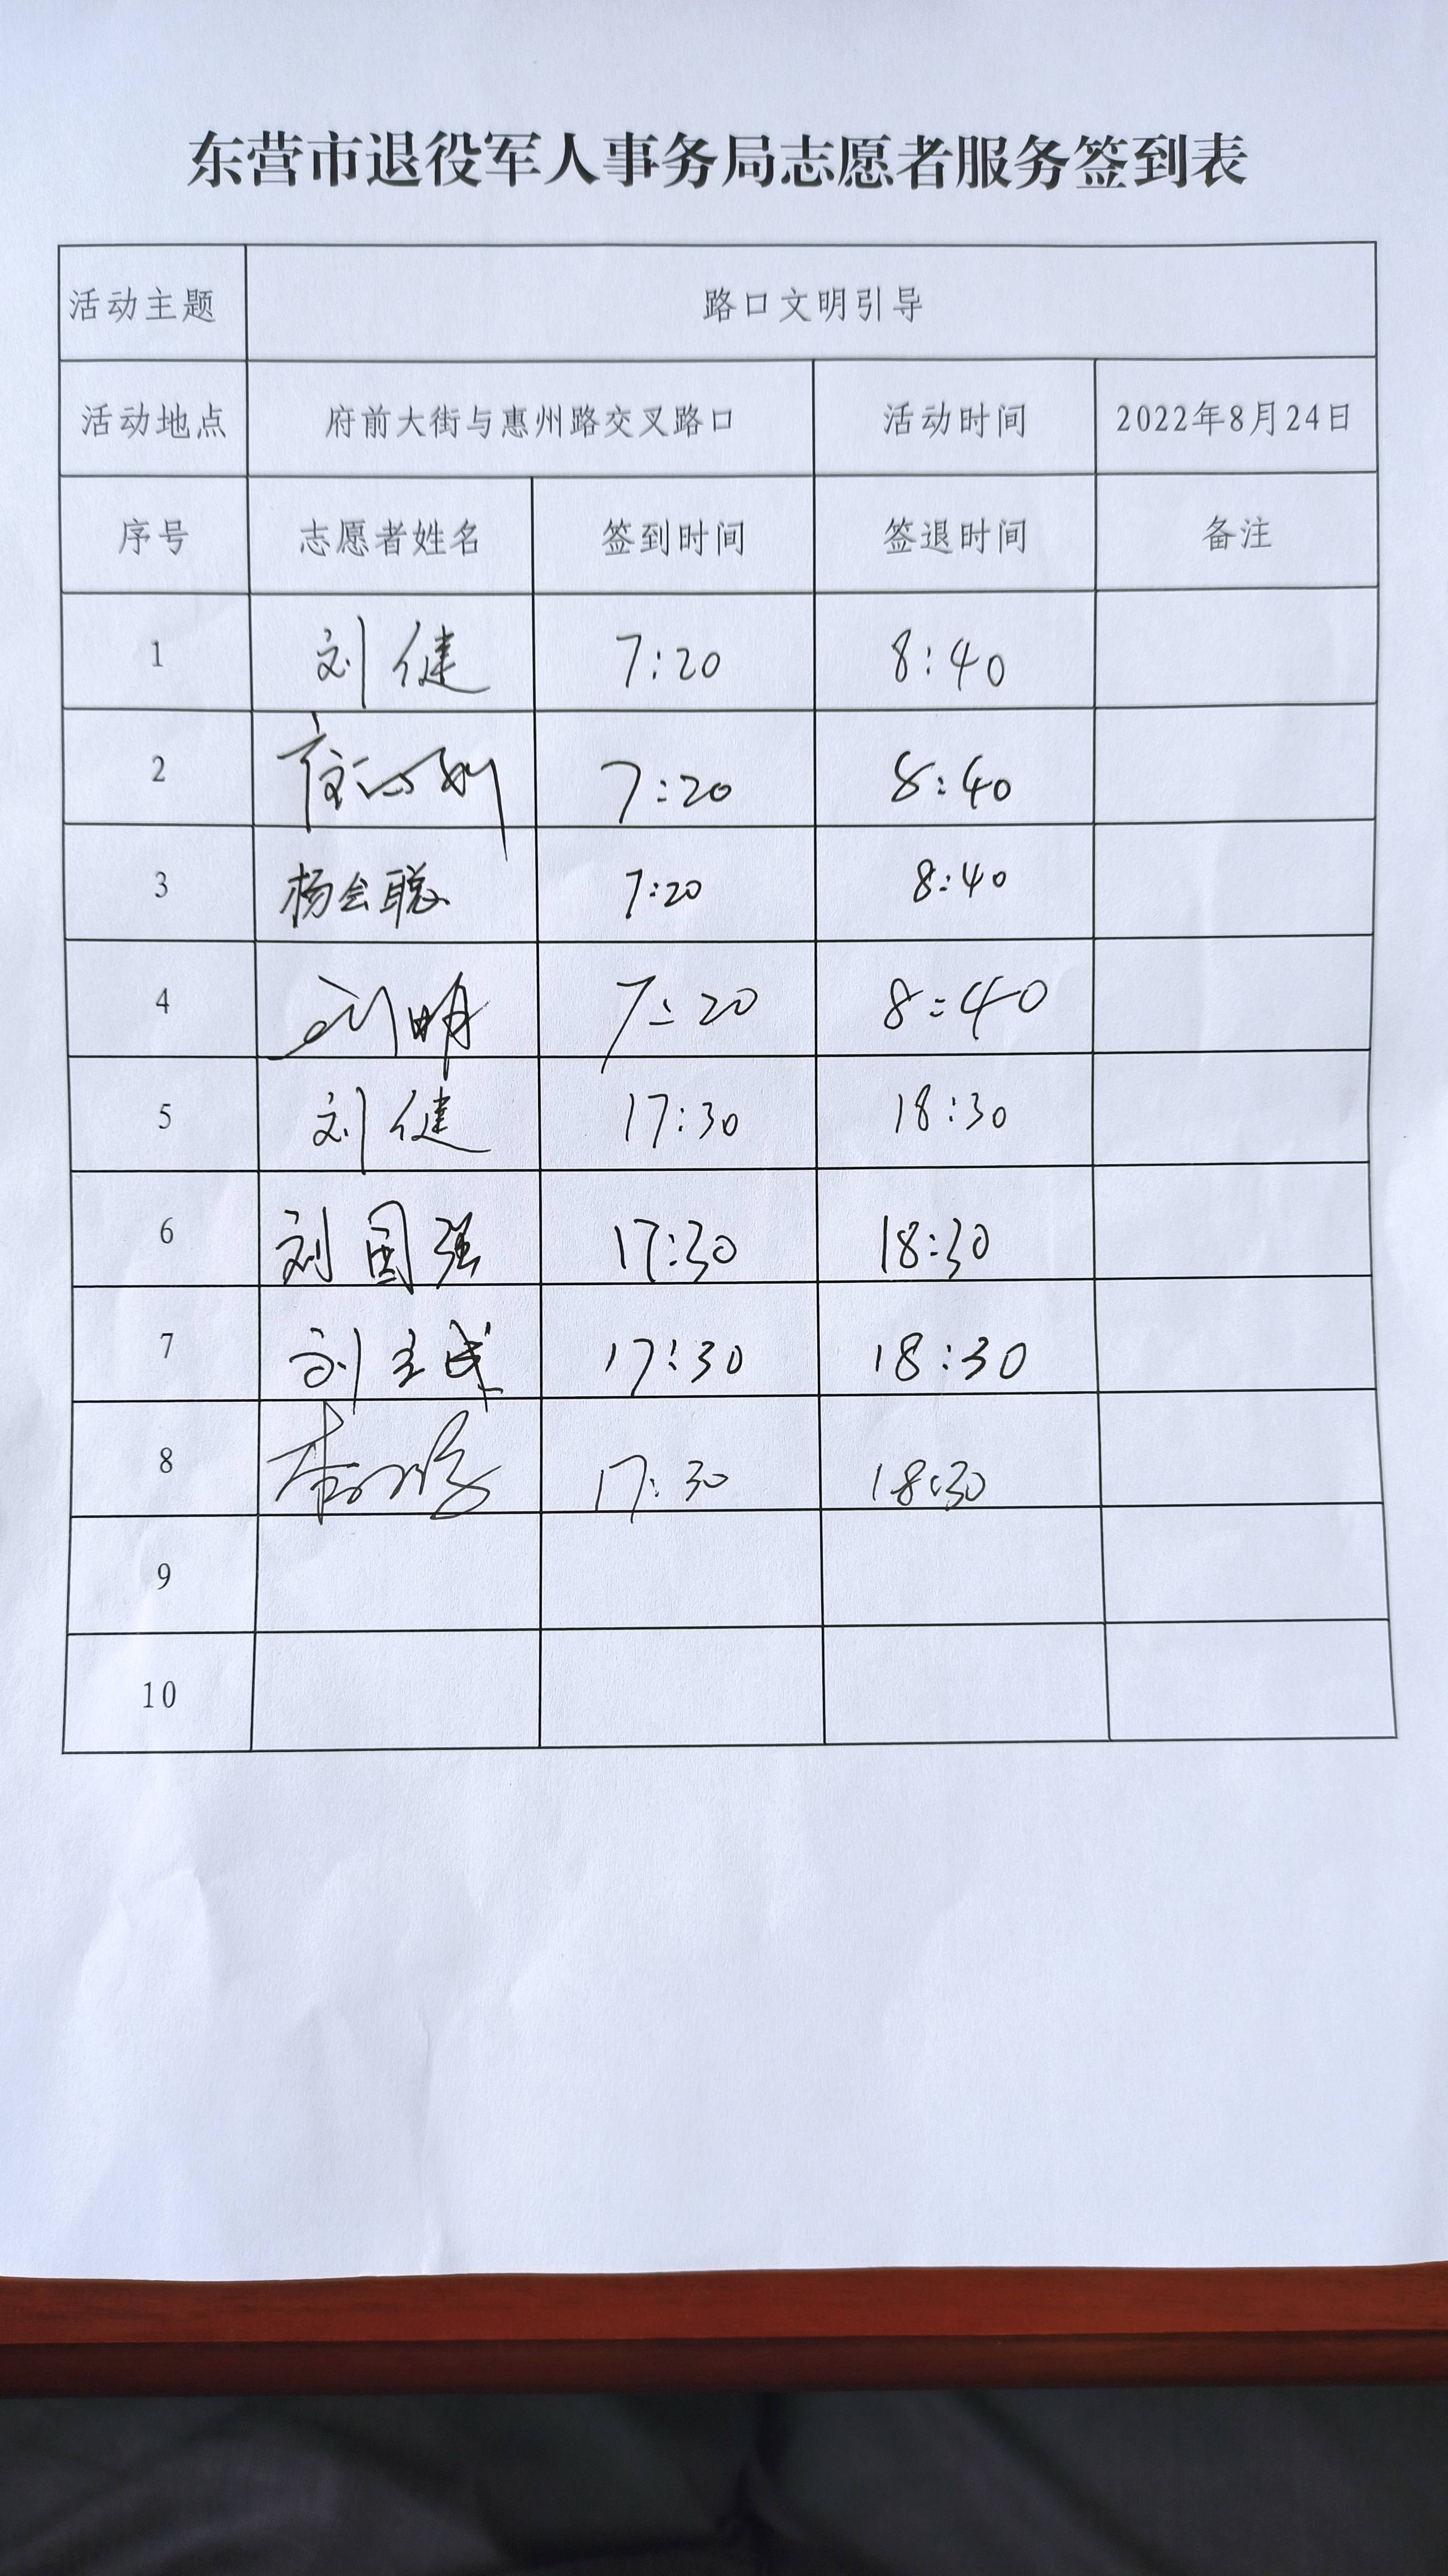 东营市退役军人事务局志愿者服务签到表
活动主题 路口文明引导
活动地点 府前大街与惠州路交叉路口 活动时间 2022年8月24日
序号 志愿者姓名 签到时间 签退时间 备注
1 刘健 7:20 8:40
2 7:20 8:40
3 杨会聪 7:20 8:40
4 刘明 7:20 8:40
5 刘健 17:30 18:30
6 刘国强 17:30 18:30
7 刘 17:30 18:30
8 17:30 18:30
9
10